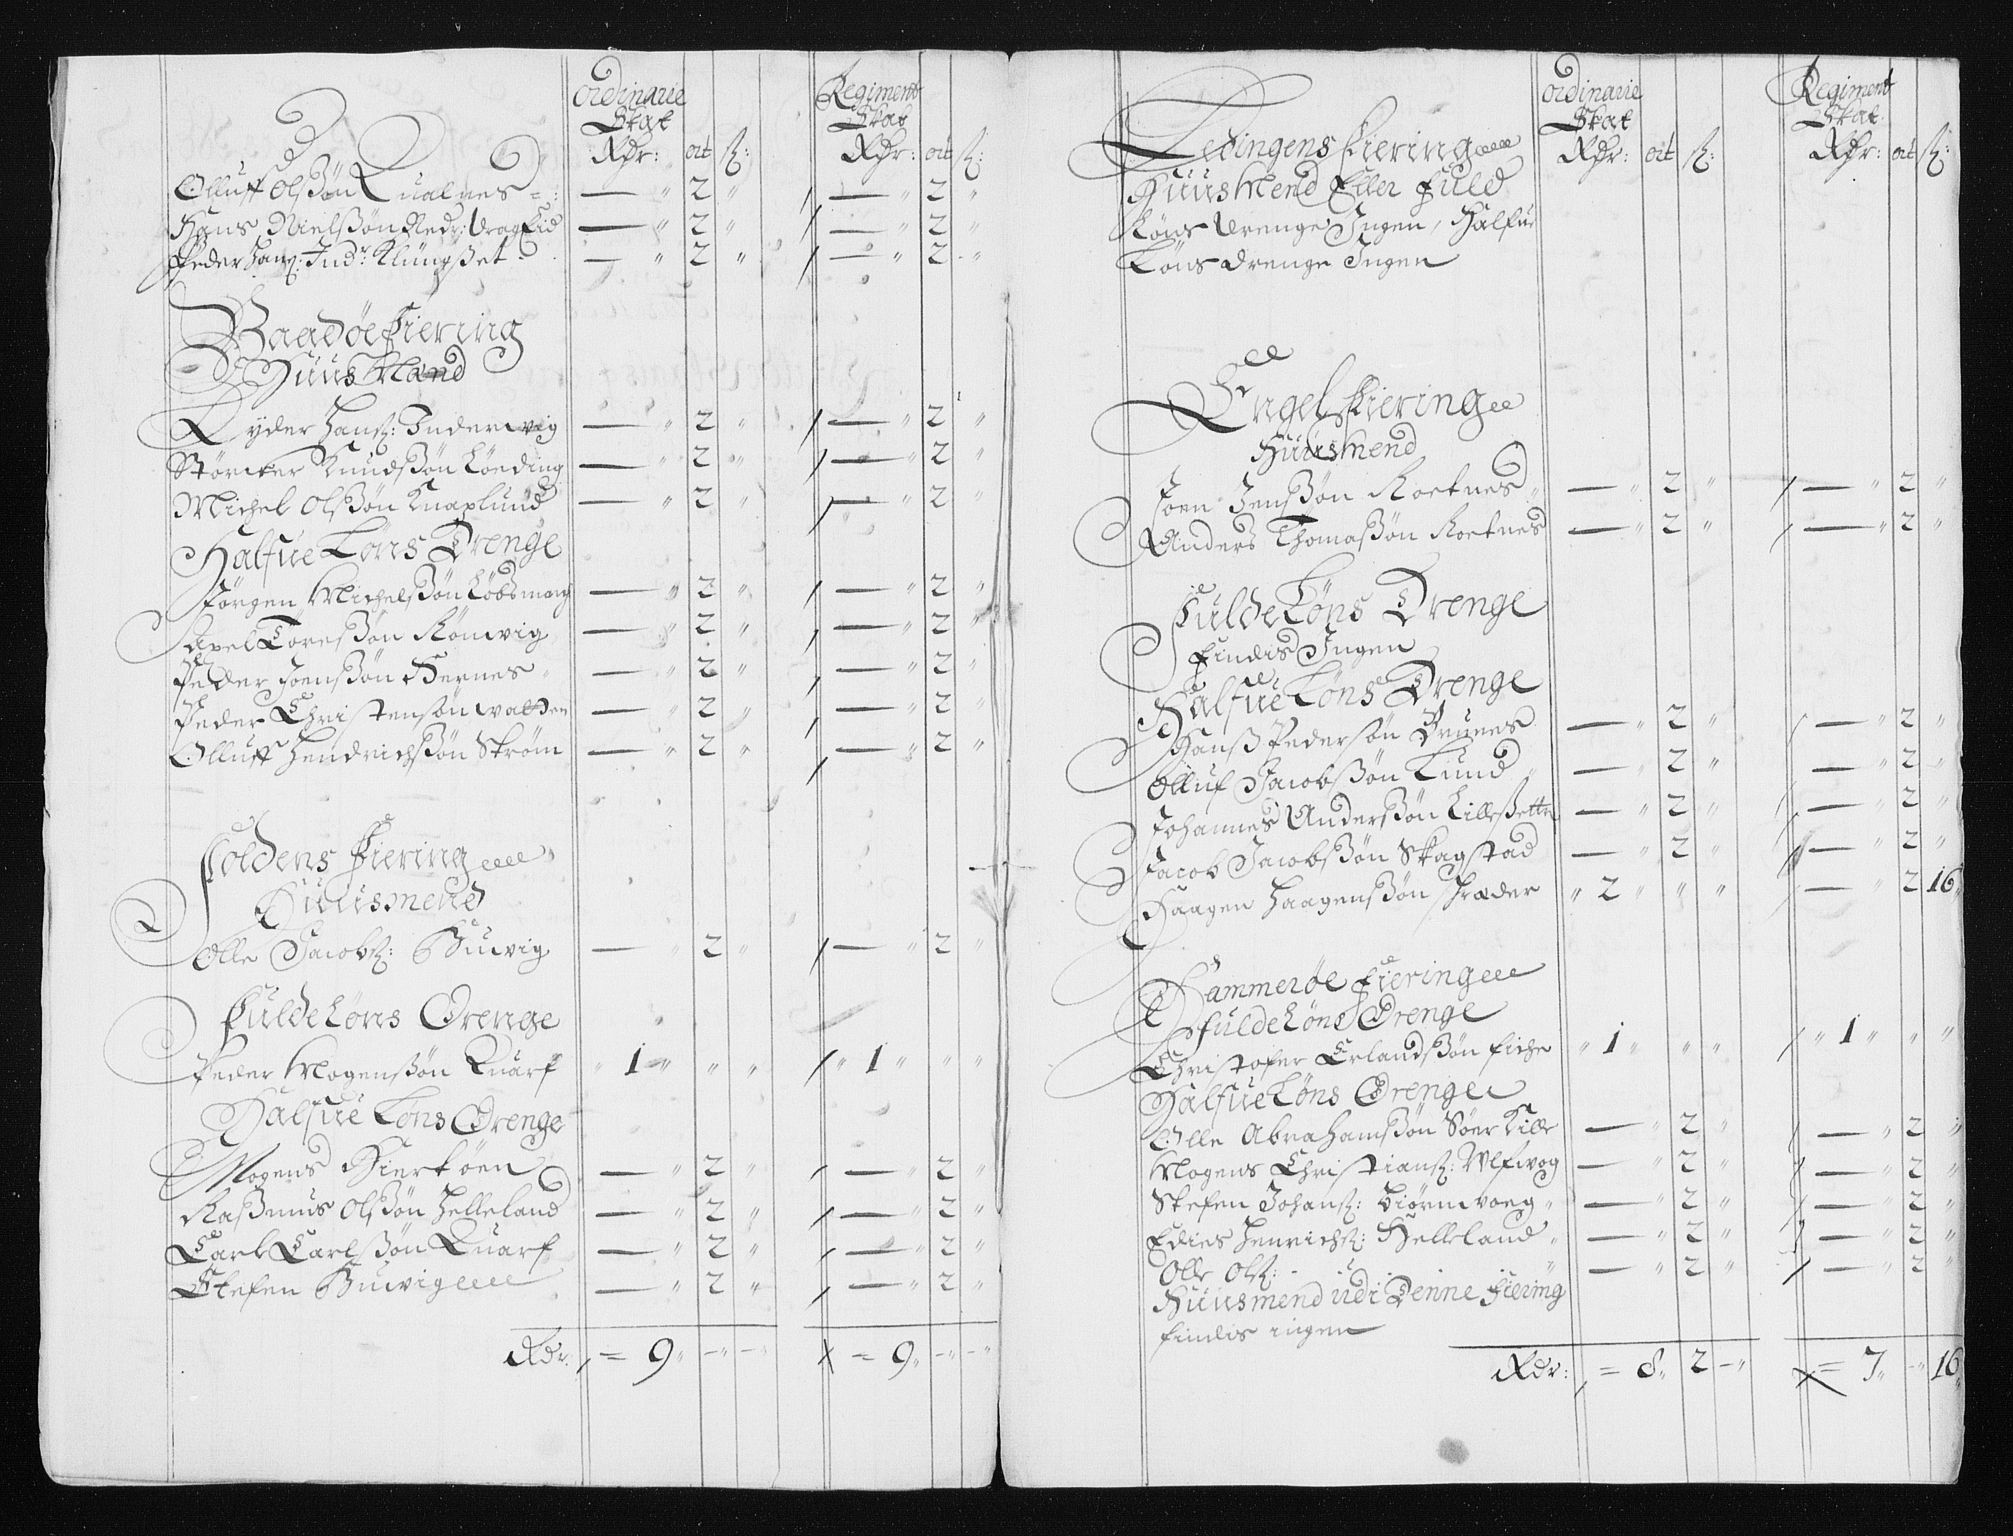 Ordinarie Skat Regiment Skat
Rdr: ort ß: Rdr: ort ß:
Olluff Olßøn Qualnes — " 2 " — " 2 "
Hans Nielßøn Nedr: Vrag Eid — " 2 " — " 2 "
Peder Hanß: Indr Klungset — " 2 " — " 2 "
Baadøe Fiering
Huusmænd
Tyder Hanß: Inderwig — " 2 " — " 2 "
Størcker Knudßøn Løeding — " 2 " — " 2 "
Michel Olßøn Knaplund — " 2 " — " 2 "
Halfue Løns Drenge
Jørgen Michelßøn Løbsmarch — " 2 " — " 2 "
Axel Toreßøn Rønwig — " 2 " — " 2 "
Peder Joenßøn Hernes — " 2 " — " 2 "
Peder Christensøn watten — " 2 " — " 2 "
Olluff Hendrichßøn Strøm — " 2 " — " 2 "
Foldens Fiering
Huusmend
Olle Jacobß: Buwig — " 2 " — " 2 "
Fulde Løns Drenge
Peder Mogenßøn Quarf " 1 " " " " 1 " " "
Halfue Løns Drenge
Mogens Hierkøen — " 2 " — " 2 "
Raßmus Olßøn Helleland — " 2 " — " 2 "
Carl Carlßøn Quarf — " 2 " — " 2 "
Stefen Buwig — " 2 " — " 2 "
Rdr: = 9 " - " - " = 9 " - " - "
Ordinarie Skat Regiment Skat
Rdr: ort ß: Rdr: ort ß:
Ledingens Fiering
Huusmend Eller Fuld
Løns Drenge Ingen, Halfue
Løns Drenge Ingen
Engels Fiering
Huusmend
Joen Jenßøn Korknes — " 2 " — " 2 "
Anders Thomaßøn Korknes — " 2 " — " 2 "
Fulde Løns Drenge
findis Ingen
Halfue Løns Drenge
Hanß Pedersøn Bruenes — " 2 " — " 2 "
Olluf Jacobßøn Lund — " 2 " — " 2 "
Johannes Anderßøn Lilleßetter — " 2 " — " 2 "
Jacob Jacobßøn Skagstad — " 2 " — " 2 "
Haagen Haagenßøn skræder " 2 " " " — " 2 16
Hammerøe Fiering
Fulde Løns Drenge
Christofer Erlandßøn " 1 " " " " 1 " " "
Halfue Løns Drenge
Olle Abrahamßøn — " 2 " — " 2 "
Mogens Christianß: Ulfwog — " 2 " — " 2 "
Stefen Johanß: Biørnwoeg — " 2 " — " 2 "
Edies Henrichß: Helleland — " 2 " — " 2 "
Olle Olß: — " 2 " — " 2 "
Huusmend udi Denne Fiering
findis ingen
Rdr: = 8 " 2 - " = 7 " - " 16